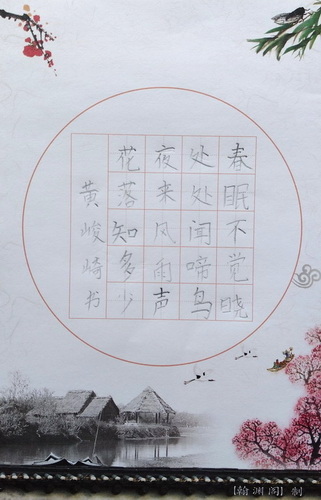 春眠不觉晓
处处闻啼鸟
夜来风雨声
花落知多少
黄峻崎书
【翰渊阁】制